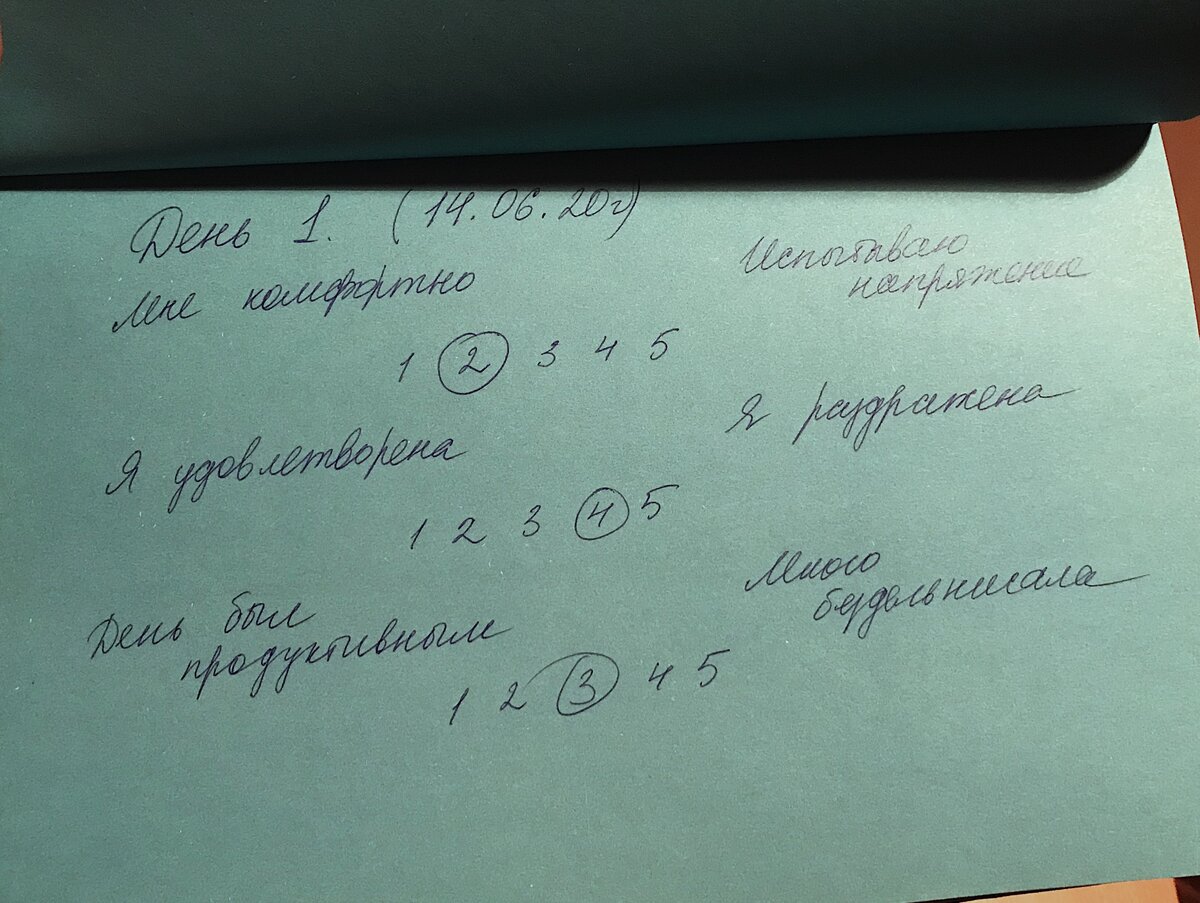 День 1. (14.06.20г)
Мне комфортно
Испытываю
напряжение
1 2 3 4 5
Я удовлетворена
Я раздражена
1 2 3 4 5
День был
продуктивным
Много
бездельничала
1 2 3 4 5